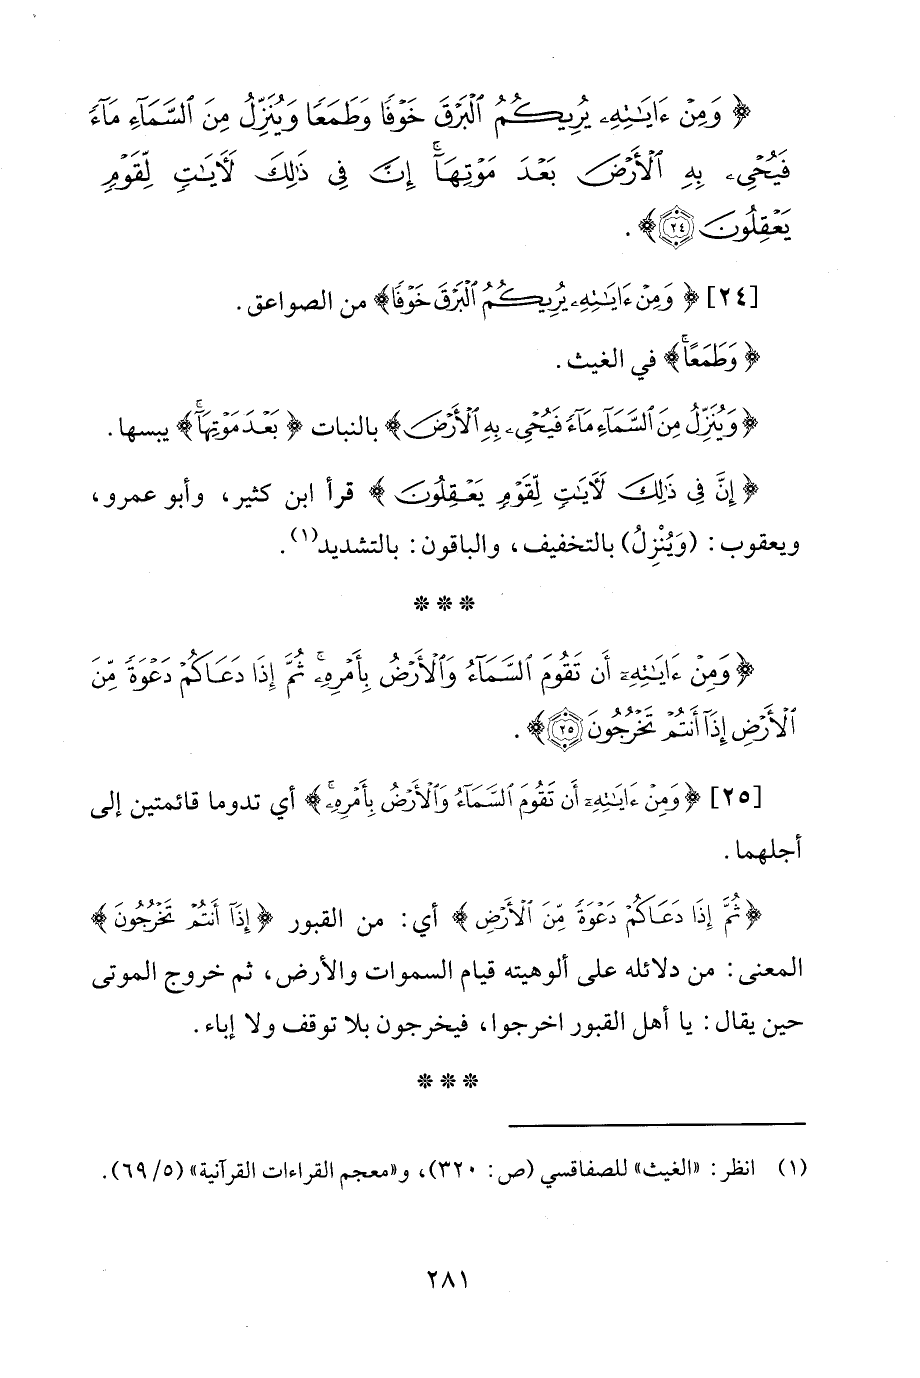 ﴿ وَمِنْ ءَايَـٰتِهِۦ يُرِيكُمُ ٱلْبَرْقَ خَوْفًا وَطَمَعًا وَيُنَزِّلُ مِنَ ٱلسَّمَآءِ مَآءً
فَيُحْىِۦ بِهِ ٱلْأَرْضَ بَعْدَ مَوْتِهَآ ۚ إِنَّ فِى ذَٰلِكَ لَـَٔايَـٰتٍ لِّقَوْمٍ
يَعْقِلُونَ ٢٤ ﴾ .
[٢٤] ﴿ وَمِنْ ءَايَـٰتِهِۦ يُرِيكُمُ ٱلْبَرْقَ خَوْفًا﴾ من الصواعق .
﴿ وَطَمَعًا ۚ ﴾ في الغيث .
﴿ وَيُنَزِّلُ مِنَ ٱلسَّمَآءِ مَآءً فَيُحْىِۦ بِهِ ٱلْأَرْضَ ﴾ بالنبات ﴿ بَعْدَ مَوْتِهَآ ۚ ﴾ يبسها .
﴿ إِنَّ فِى ذَٰلِكَ لَـَٔايَـٰتٍ لِّقَوْمٍ يَعْقِلُونَ ﴾ قرأ ابن كثير، وأبو عمرو،
ويعقوب: (وَيُنْزِلُ) بالتخفيف، والباقون: بالتشديد(١) .
* * *
﴿ وَمِنْ ءَايَـٰتِهِۦٓ أَن تَقُومَ ٱلسَّمَآءُ وَٱلْأَرْضُ بِأَمْرِهِۦ ۚ ثُمَّ إِذَا دَعَاكُمْ دَعْوَةً مِّنَ
ٱلْأَرْضِ إِذَآ أَنتُمْ تَخْرُجُونَ ٢٥ ﴾ .
[٢٥] ﴿ وَمِنْ ءَايَـٰتِهِۦٓ أَن تَقُومَ ٱلسَّمَآءُ وَٱلْأَرْضُ بِأَمْرِهِۦ ۚ ﴾ أي تدوما قائمتين إلى
أجلهما .
﴿ ثُمَّ إِذَا دَعَاكُمْ دَعْوَةً مِّنَ ٱلْأَرْضِ ﴾ أي: من القبور ﴿ إِذَآ أَنتُمْ تَخْرُجُونَ ﴾
المعنى: من دلائله على ألوهيته قيام السموات والأرض، ثم خروج الموتى
حين يقال: يا أهل القبور اخرجوا، فيخرجون بلا توقف ولا إباء .
* * *
(١) انظر: «الغيث» للصفاقسي (ص: ٣٢٠)، و«معجم القراءات القرآنية» (٥/ ٦٩) .
٢٨١